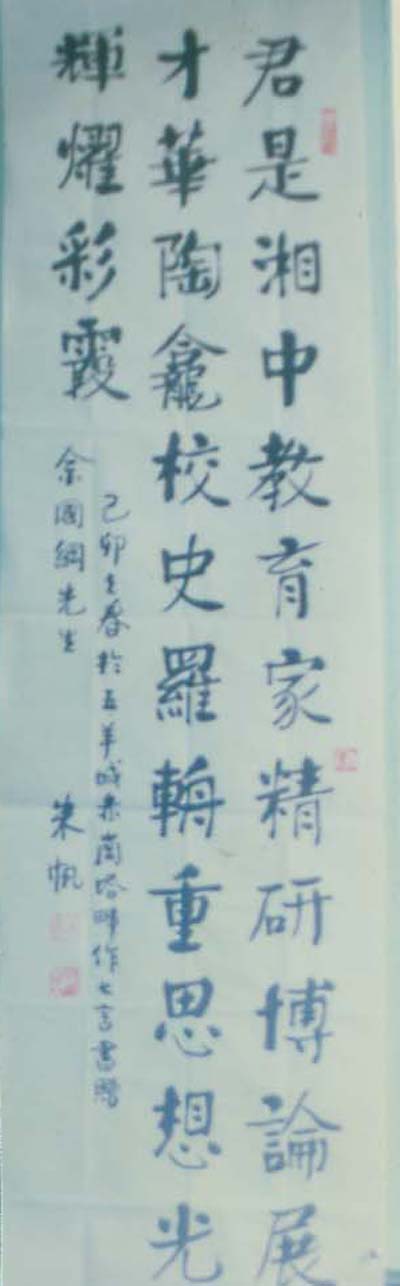 君是湘中教育家精研博論展
才華陶龕校史羅輈重思想光
輝燿彩霞
己卯之春於五羊城赤崗塔畔作七言書贈
余國綱先生 朱帆